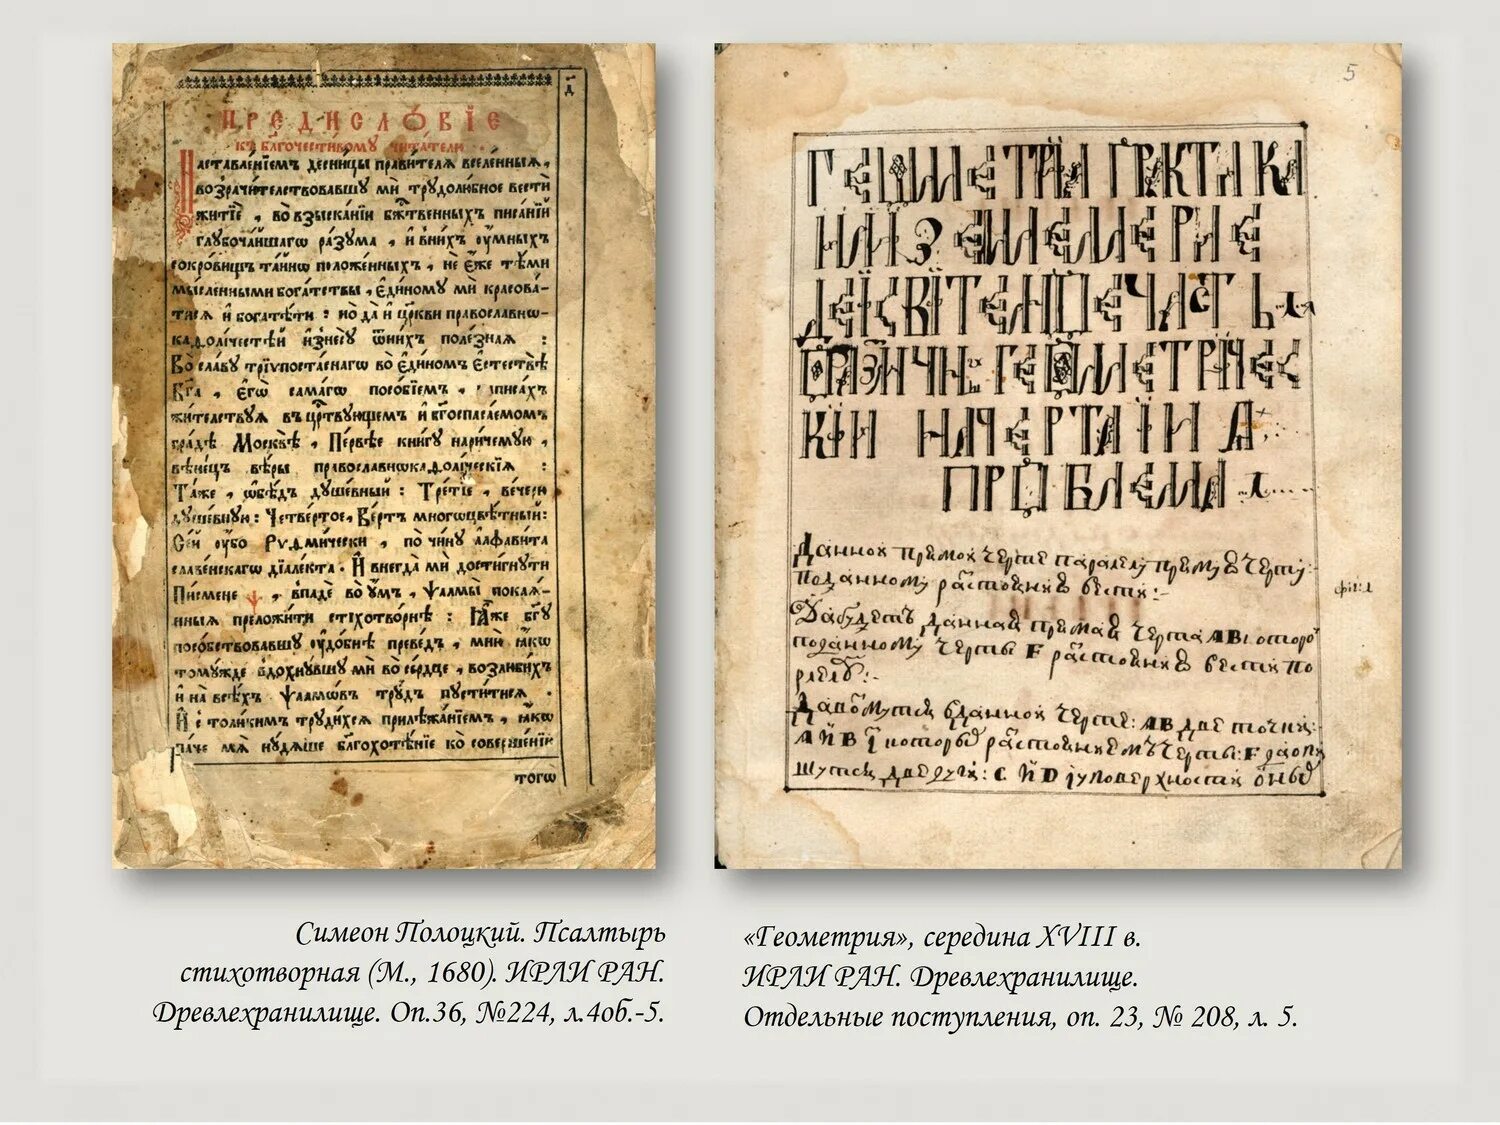 ПРЕДИСЛО́ВІЕ
къ благочести́вому чита́телю
Наставле́нїемъ десни́цы прави́теля вселе́нныѧ,
во
мѝ трудолю́бное вестѝ
житїѐ, во взыска́нїи бж҃твенныхъ писа́нїй
глубоча́йшагѡ ра́зума, и҆ в ни́хъ ᲂу҆́мныхъ
сокро́вищъ та́йнѡ положе́нныхъ, не є҆́же тѣ́ми
мы́сленными бога́тствы, є҆ди́ному мѝ красова́-
тисѧ и҆ богатѣ́ти: но да и҆ цр҃кви правосла́внѡ-
каѳоли́честѣй и҆знесу̀ ѿ ни́хъ поле́знаѧ :
Во сла́ву трїѵпоста́снагѡ во є҆ди́номъ є҆стествѣ̀
Бг҃а, є҆гѡ̀ самагѡ посо́бїемъ, написа́хъ
жи́телствуѧ въ црⷭ҇твующемъ и҆ бг҃оспаса́емомъ
гра́дѣ Москвѣ̀, Пе́рвѣе кни́гу нарече́мую,
вѣне́цъ вѣ́ры правосла́внокаѳоли́ческїѧ :
Та́же, ѡ҆бѣ́дъ душе́вный: Тре́тїе, ве́черю
душе́вную: Четве́ртое, Ве́ртъ многоцвѣ́тный:
Се́й ᲂу҆́бо Риѳми́чески, по чи́ну а҆лфави́та
славе́нскагѡ дїале́кта. И҆ внегда̀ мѝ дости́гнути
Писмене ѱ, впадѐ во ᲂу҆́мъ, Ѱалмы̀ покаѧ́-
нныѧ преложи́ти стїхотво́рнѣ : Ꙗ҆́же бг҃у
посо́бствовавшу ᲂу҆до́бнѣ преведъ, мню̀ ꙗ҆́кѡ
томужде вдохну́вшу мѝ во се́рдце, возлюби́хъ
и҆ на всѣ́хъ Ѱалмѡ́въ тру́дъ пусти́тисѧ .
И҆ с толи́кимъ труди́хсѧ прилѣжа́нїемъ, ꙗ҆́кѡ
па́че мѧ̀ нудѧ́ше благохотѣ́нїе ко соверше́нїю
тогѡ̀
5
ГЕѠМЕТРІА ПРАКТИКА
ИЛИ ЗЕМЛЕМЕРИЕ
ДЕІСВІТЕЛНОЕ ЧАСТЬ
О РАЗНЧНЫ ГЕОМЕТРІЧЕС
КІИ НАЧЕРТАІИ А
ПРОБЛЕМА
Даннои прямои черте паралелу прямую черту
поданному растоянию вести :-
Да будетъ данная прямая черта АВ. которои
поданному черты F растоянию вести по
ралел :-
А И В
растояниемъ черты: F
дуги: С И D
фиг:1
Симеон Полоцкий. Псалтырь
стихотворная (М., 1680). ИРЛИ РАН.
Древлехранилище. Оп.36, №224, л.4об.-5.
«Геометрия», середина XVIII в.
ИРЛИ РАН. Древлехранилище.
Отдельные поступления, оп. 23, № 208, л. 5.